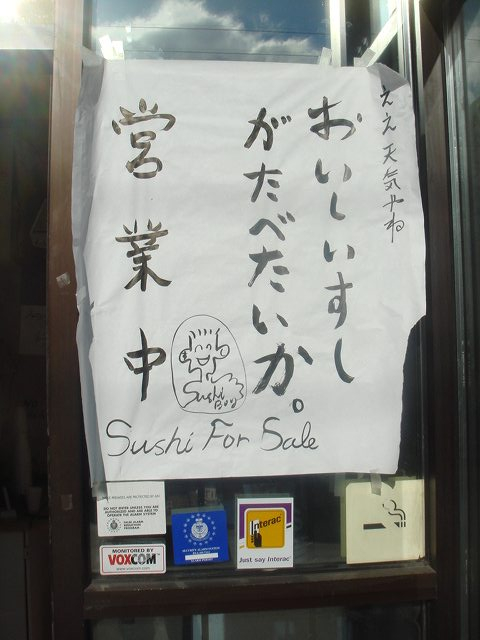 ええ天気やね
おいしいすし
がたべたいか。
営業中
Sushi
Boy
Sushi For Sale
DO NOT ENTER UNLESS YOU ARE
AUTHORIZED AND ARE ABLE TO
OPERATE THE ALARM SYSTEM
MONITORED BY
VOXCOM
www.voxcom.com
Interac
Just say Interac